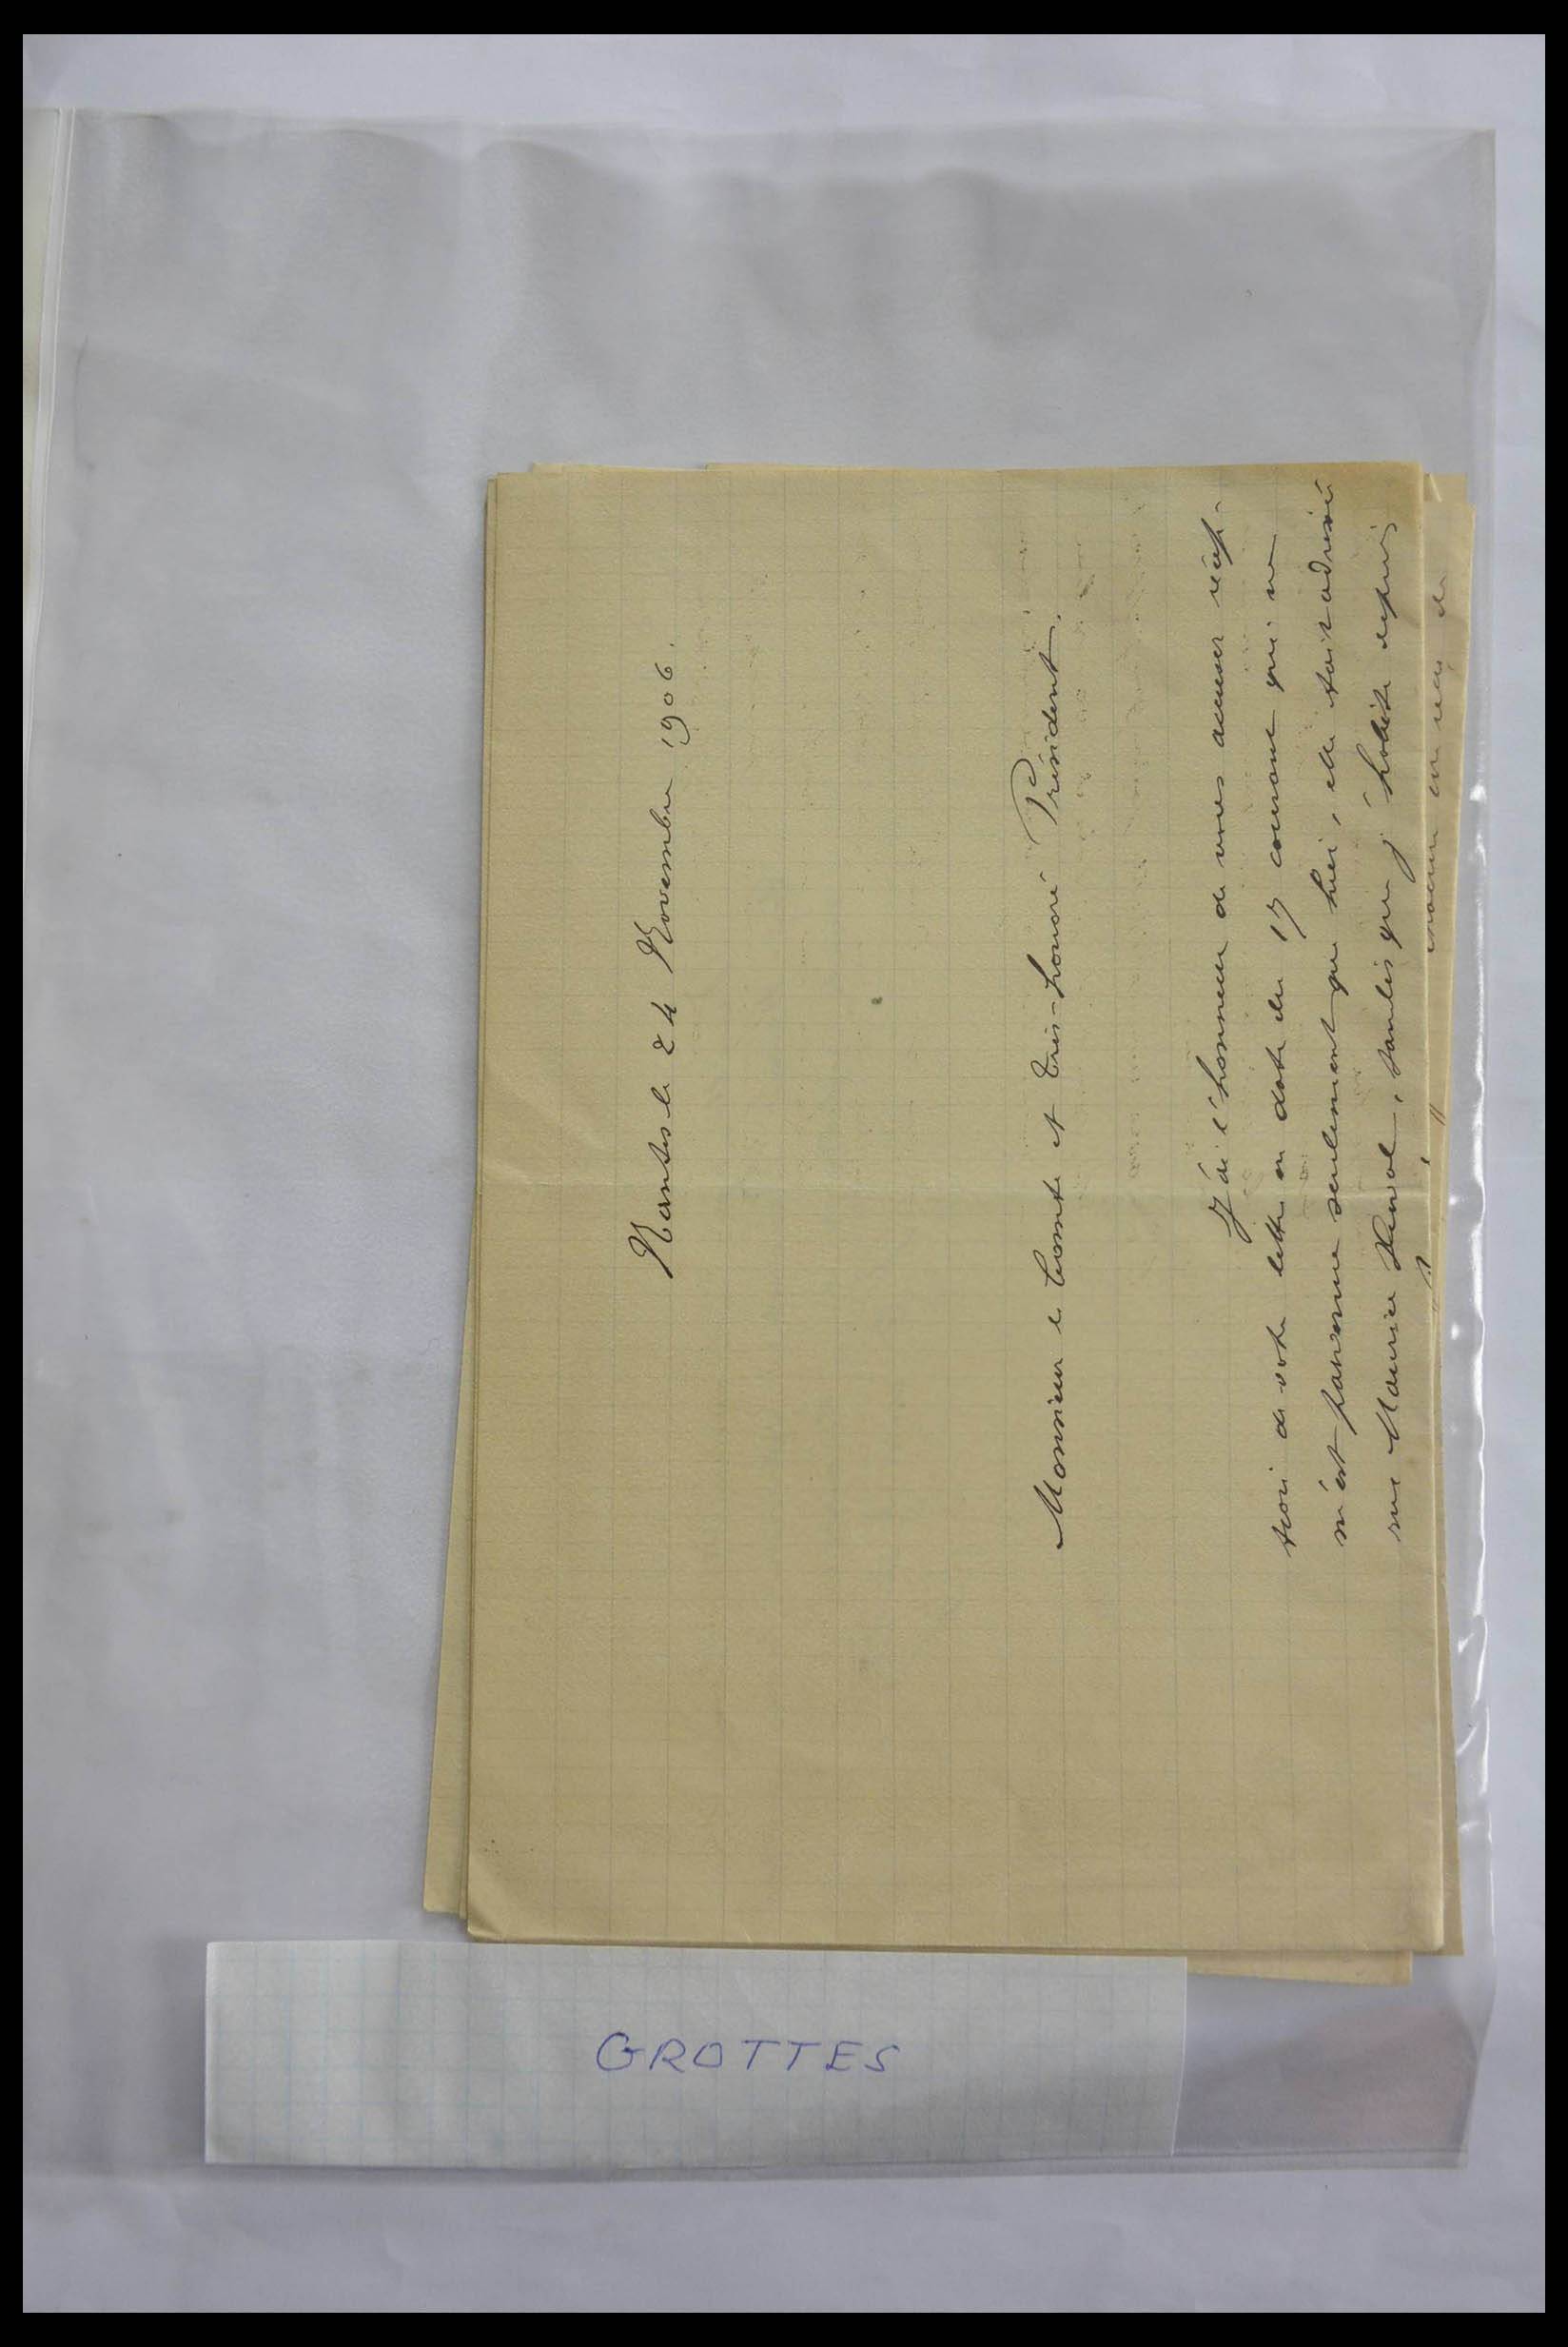 Nantes le 24 Novembre 1906.
Monsieur le Comte et très-honoré Président.
J'ai l'honneur de vous accuser récep-
tion de votre lettre en date du 17 courant qui ne
m'est parvenue seulement que hier, elle était adressée
rue Maurice Duval, tandis que j'habite depuis
GROTTES